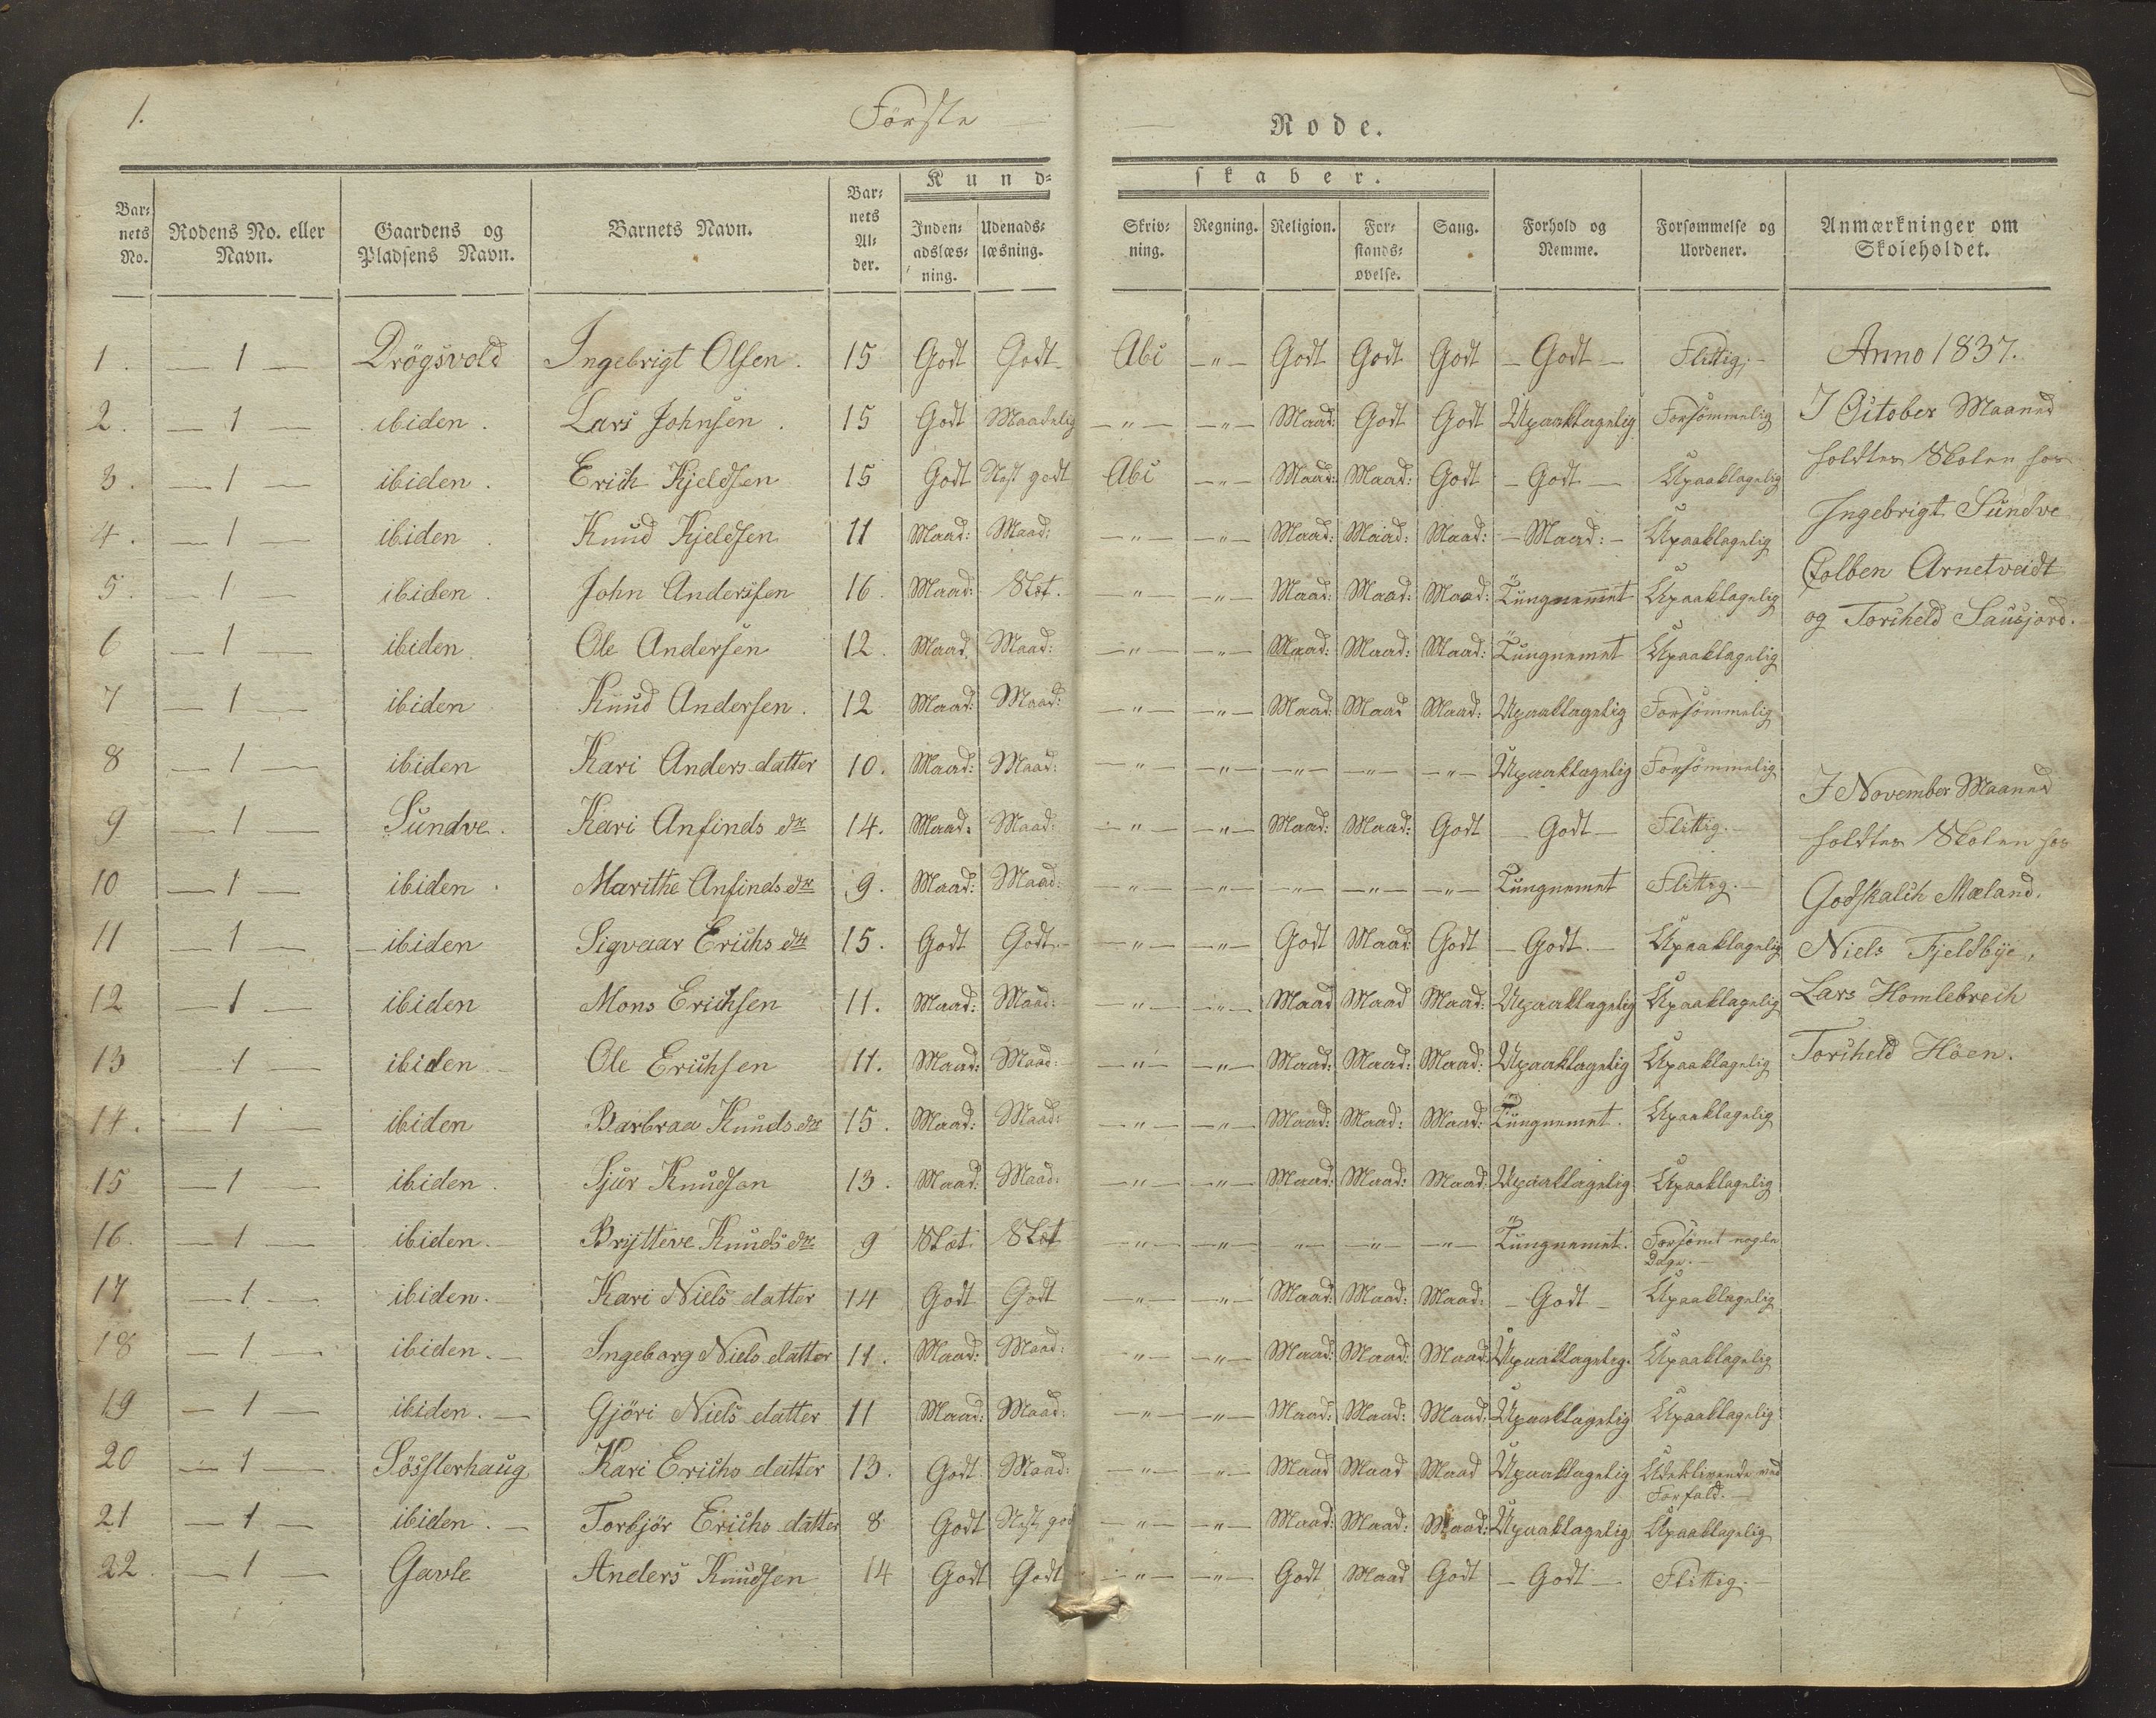 1. Förste Rode.
Kundskaber.
Barnets No. Rodens No. eller Navn. Gaardens og Pladsens Navn. Barnets Navn. Barnets Alder. Indenadslæsning. Udenadslæsning. Skrivning. Regning. Religion. Forstandsøvelse. Sang. Forhold og Nemme. Forsømmelse og Uordener. Anmærkninger om Skoleholdet.
1. — 1 — Drögsvold Ingebrigt Olsen. 15 Godt Godt Abc — " — Godt Godt Godt — Godt — Flittig. —
2. — 1 — ibiden. Lars Johnsen. 15 Godt Maadelig — " — — " — Maad: Godt Godt Upaaklagelig Forsömmelig
3. — 1 — ibiden. Erich Kjeldsen 15 Godt Næst godt Abc — " — Maad: Maad: Godt — Godt — Upaaklagelig
4. — 1 — ibiden. Knud Kjeldsen 11 Maad: Maad: — " — — " — Maad: Maad: Maad: — Maad: — Upaaklagelig
5. — 1 — ibiden. John Andersen 16. Maad: Slet. — " — — " — Maad: Maad: Maad: Tungnemet Upaaklagelig
6 — 1 — ibiden Ole Andersen 12. Maad. Maad: — " — — " — Maad: Maad: Maad: Tungnemet Upaaklagelig
7 — 1 — ibiden Knud Andersen. 12 Maad: Maad: — " — — " — Maad: Maad Maad: Upaaklagelig Forsömmelig
8 — 1 — ibiden Kari Anders datter 10. Maad: Maad: — " — — " — — " — — " — — " — Upaaklagelig Forsömmelig
9 — 1 — Sundve. Kari Anfinds dtr 14. Maad: Maad: — " — — " — Maad: Maad: Godt — Godt — Flittig. —
10 — 1 — ibiden. Marithe Anfinds dtr 9. Maad: Maad: — " — — " — — " — — " — — " — Tungnemet Flittig. —
11 — 1 — ibiden Sigvaar Erichs dtr 15. Godt Godt — " — — " — Godt Maad: Godt — Godt — Upaaklagelig
12 — 1 — ibiden Mons Erichsen 11. Maad: Maad: — " — — " — Maad Maad Maad: Upaaklagelig Upaaklagelig
13 — 1 — ibiden Ole Erichsen 11. Maad: Maad: — " — — " — Maad: Maad: Maad: Upaaklagelig Upaaklagelig
14. — 1 — ibiden Barbraa Knuds dtr 15. Maad: Maad: — " — — " — Maad: Maad: Maad: Tungnemet. Upaaklagelig
15 — 1 — ibiden. Sjur Knudsen 13. Maad: Maad: — " — — " — Maad: Maad: Maad: Upaaklagelig Upaaklagelig
16. — 1 — ibiden. Brytteve Knuds dtr 9 Slæt Slet — " — — " — — " — — " — — " — Tungnemet. Forsömt nogle Dage. —
17 — 1 — ibiden. Kari Niels datter 14 Godt Godt — " — — " — Maad: Maad: Maad: — Godt — Upaaklagelig
18 — 1 — ibiden. — Ingeborg Niels datter 11. Maad: Maad: — " — — " — Maad: Maad: Maad: Upaaklagelig. Upaaklagelig
19 — 1 — ibiden. — Gjöri Niels datter 11 Maad: Maad: — " — — " — Maad: Maad: Maad: Upaaklagelig Upaaklagelig
20 — 1 — Kari Erichs datter 13. Godt Maad: — " — — " — Maad Maad Maad Upaaklagelig Udeblivende med Forfald. —
21 — 1 — ibiden. — Torbjör Erichs datter 8 Godt Næst god — " — — " — Maad: Maad: Maad: Upaaklagelig Upaaklagelig
22. — 1 — Gavle Anders Knudsen 14 Godt Godt — " — — " — Godt Maad Godt — Godt — Flittig. —
Anno 1837.
I October Maaned
holdtes Skolen hos
Ingebrigt Sundve
Colben Arnetveidt
og Torcheld Sausjord.
I November Maaned
holdtes Skolen hos
Godskalch Mæland.
Niels Fjeldbÿe,
Lars Homlebrech
Torcheld Höen.